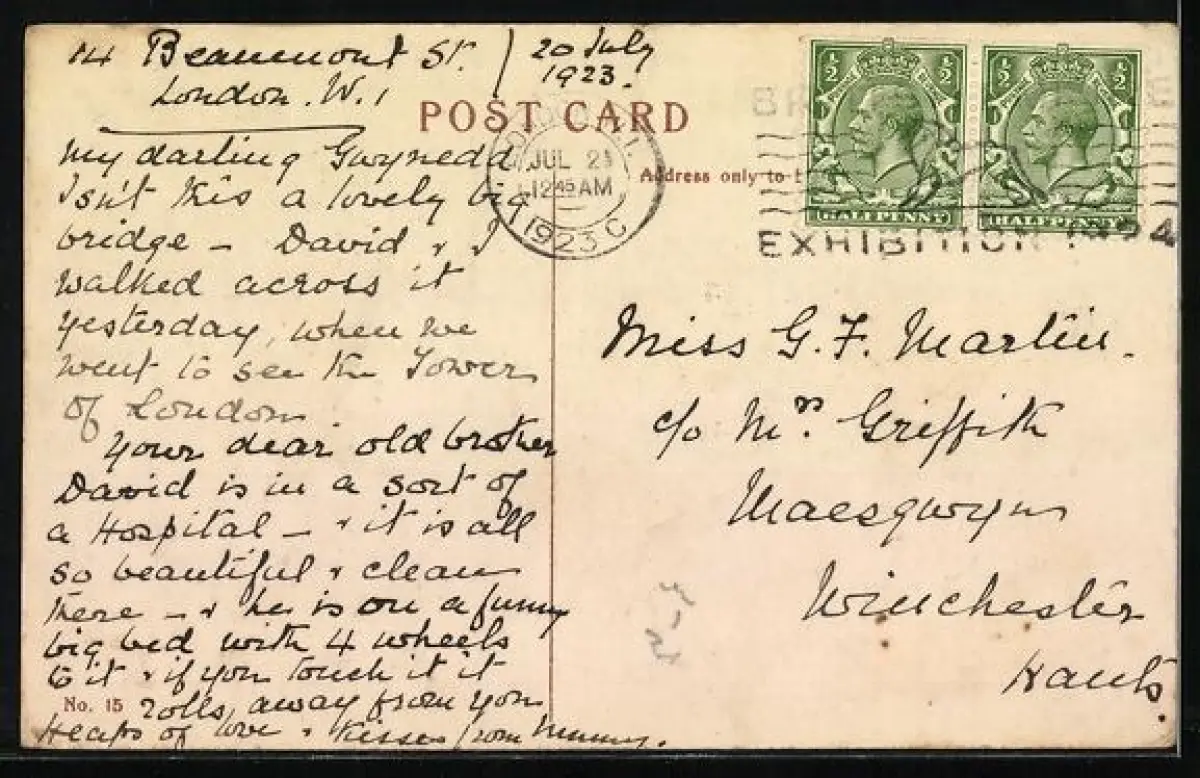 14 Beaumont St. / 20 July
1923.
London. W.1
POST CARD
My darling Gwynedd
Isn't this a lovely big
bridge – David & I
walked across it
yesterday, when we
went to see the Tower
of London
Your dear old brother
David is in a sort of
a Hospital – & it is all
so beautiful & clean
there – & he is on a funny
big bed with 4 wheels
to it & if you touch it it
rolls away from you
Heaps of love & kisses from Mummy.
No. 15
JUL 21
12 45 AM
1923 C
Address only to
½ ½
HALFPENNY
½ ½
HALFPENNY
BR
EXHIBITION 1924
Miss G. F. Martin.
c/o Mrs. Griffith
Maesgwyn
Winchester
Hants.